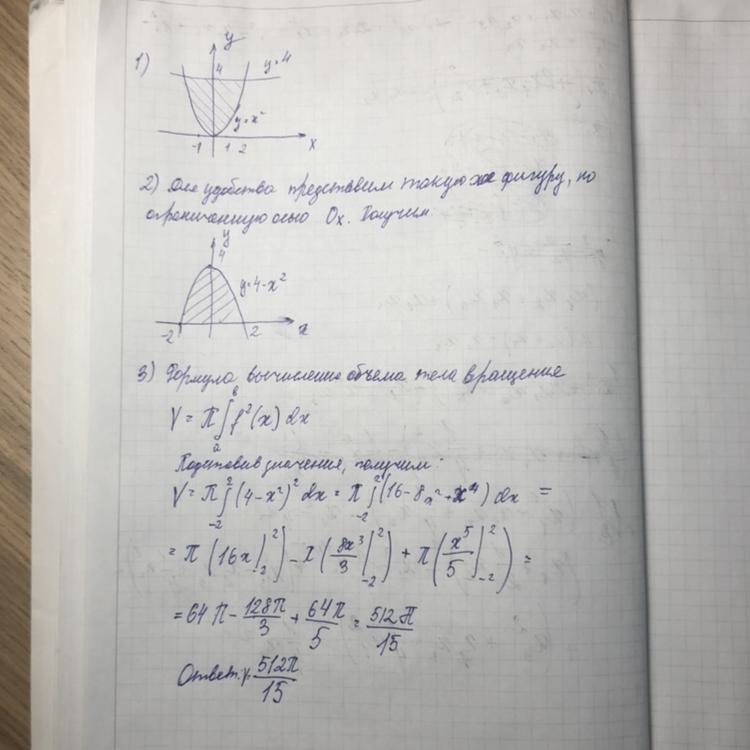 1)
y
4
y=4
y=x²
-1 1 2 x
2) Для удобства представим такую же фигуру, но
ограниченную осью Ox. Получим
y
4
y=4-x²
-2 2 x
3) Формула вычисление объема тела вращения
V = π∫ₐᵇ f²(x) dx
Подставив значение, получим:
V = π∫₋₂² (4-x²)² dx = π∫₋₂² (16-8x²+x⁴) dx =
= π (16x|₋₂²) - π (8x³/3|₋₂²) + π (x⁵/5|₋₂²) =
= 64π - 128π/3 + 64π/5 = 512π/15
Ответ: 512π/15